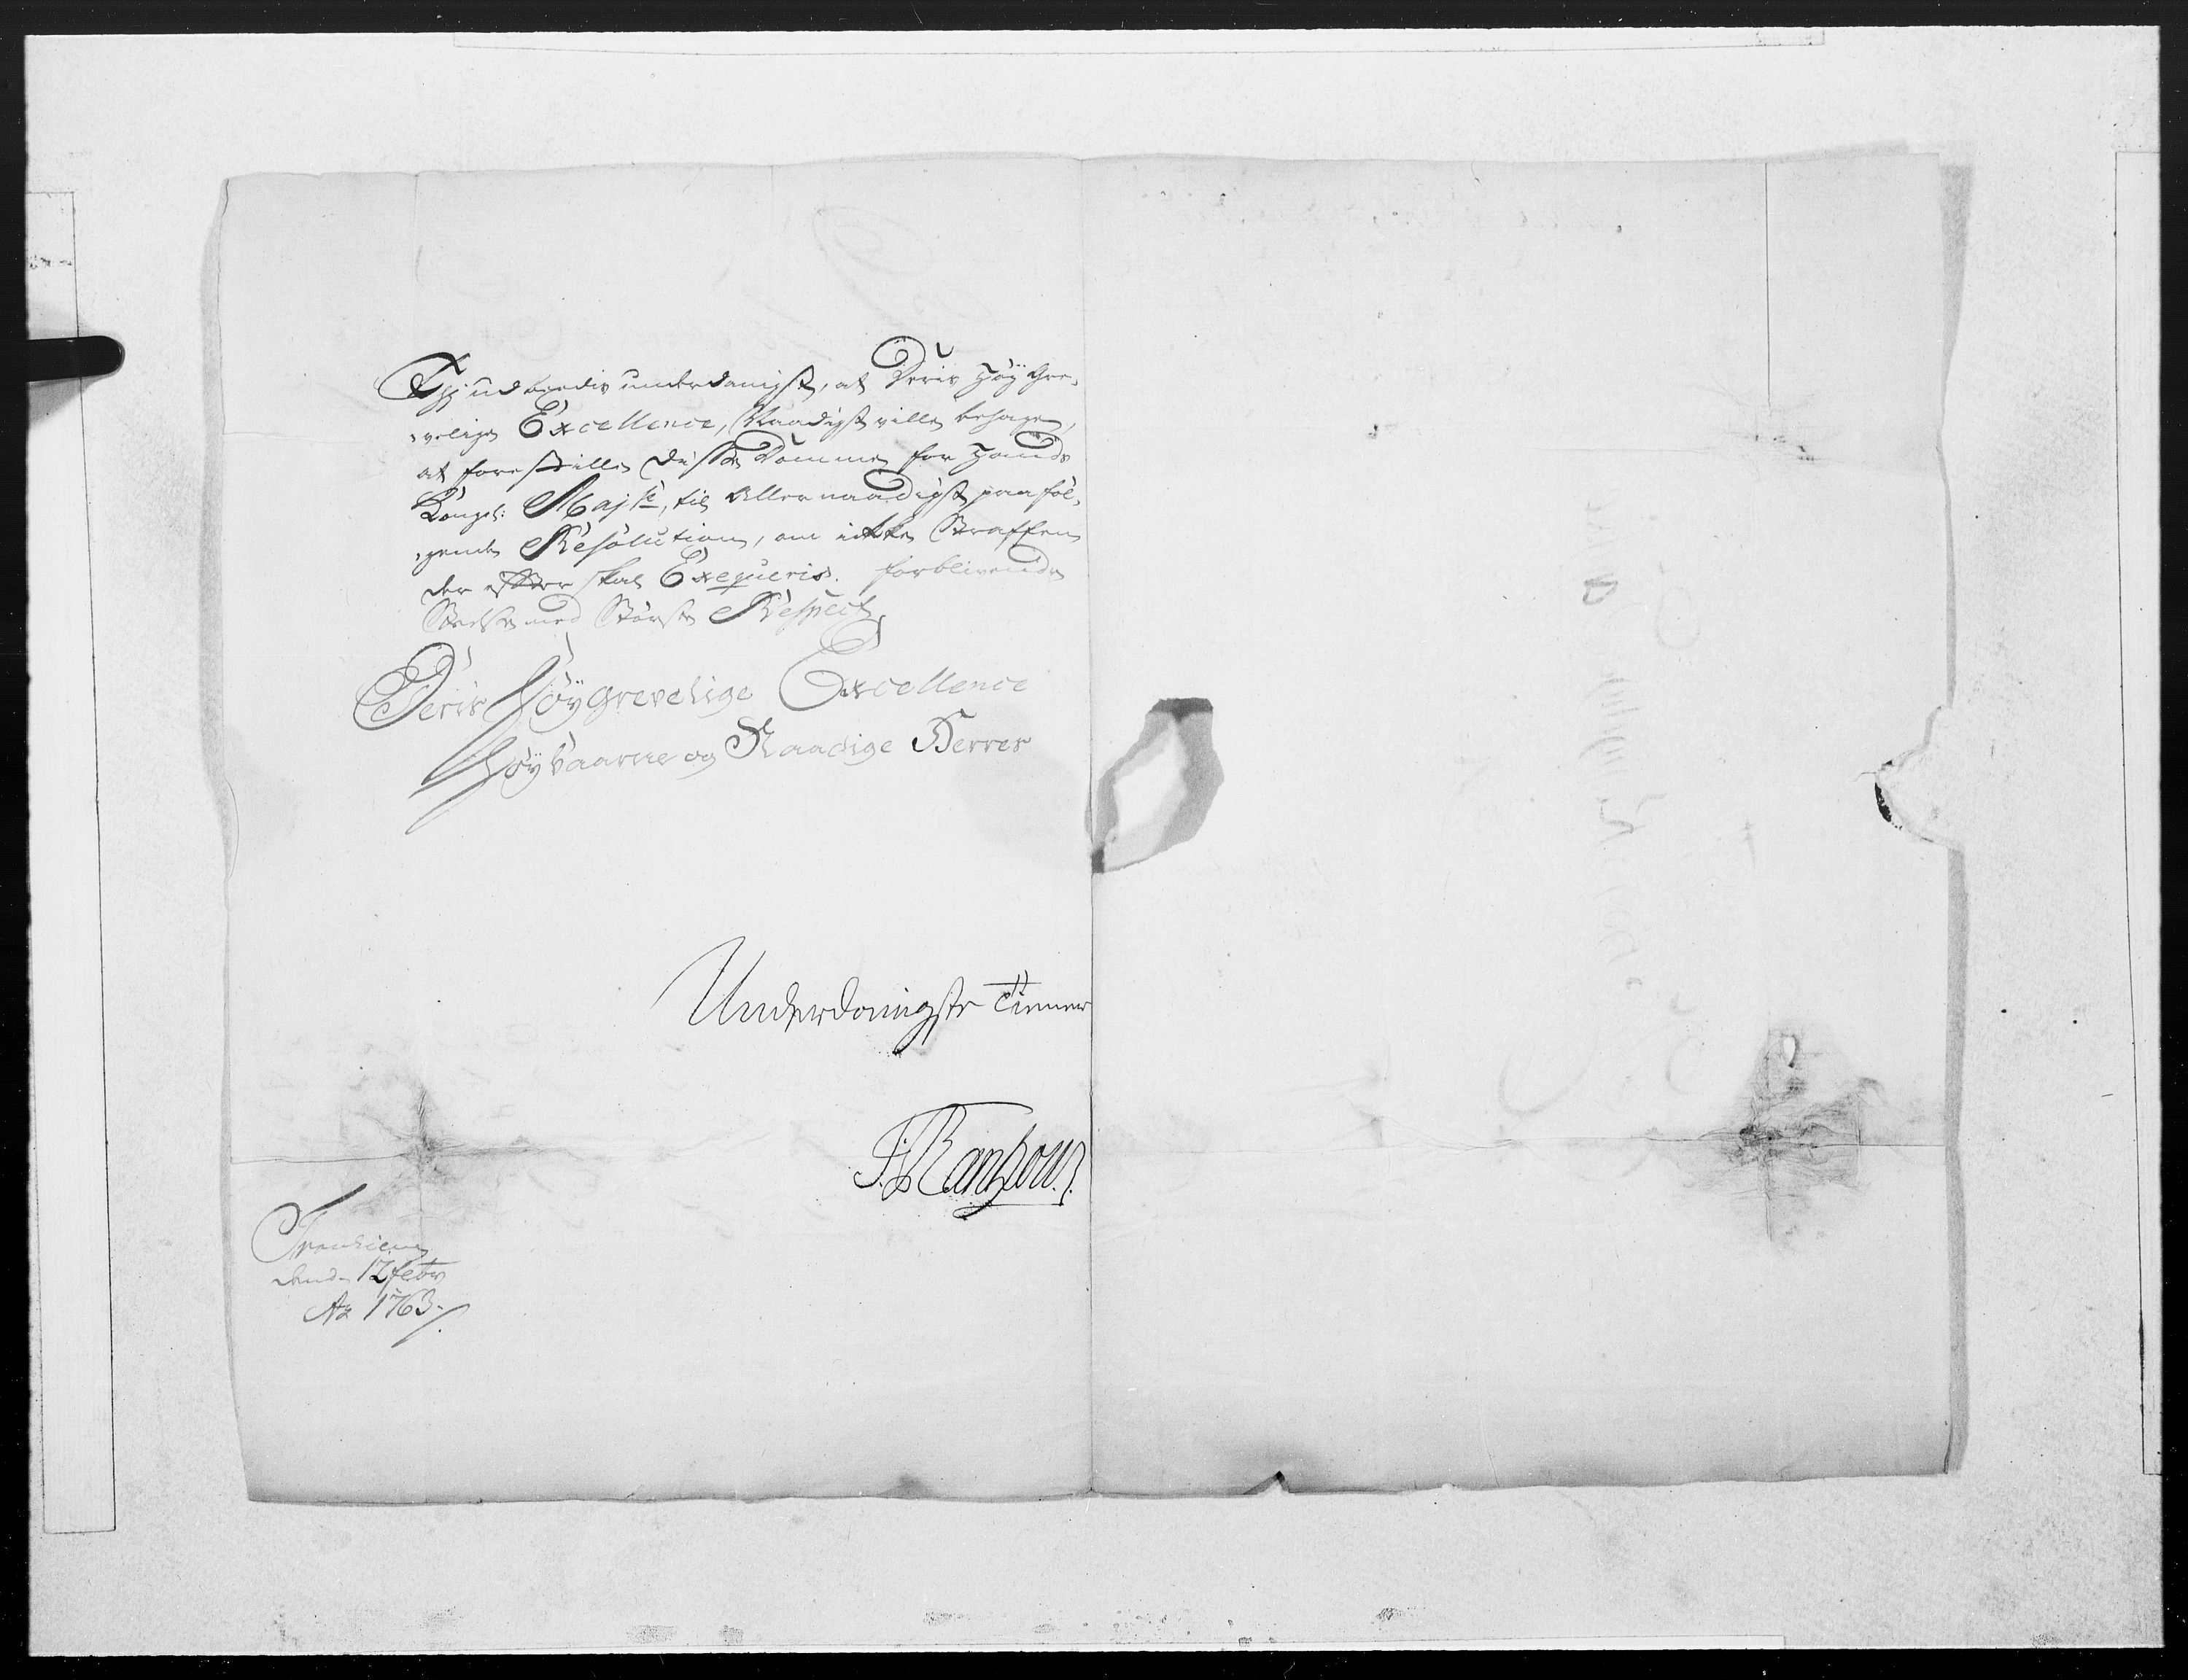 udbedis underdanigst, at Deris Höy Gre,
,velige Excellence, Naadigst ville behage,
at forestille disse Domme for Hands
Kongel: Majst, til Allernaadigst paaföl,
,gende Resolution, om ikke Straffen
der efter skal Exequeris. forblivende
Stedse med Störste Respect,
Deris Höygrevelige Excellence
Höybaarne og Naadige Herres
Underdanigste Tienner
F: Rantzou.
Trondhiem
dend 12 febr
Ao 1763.